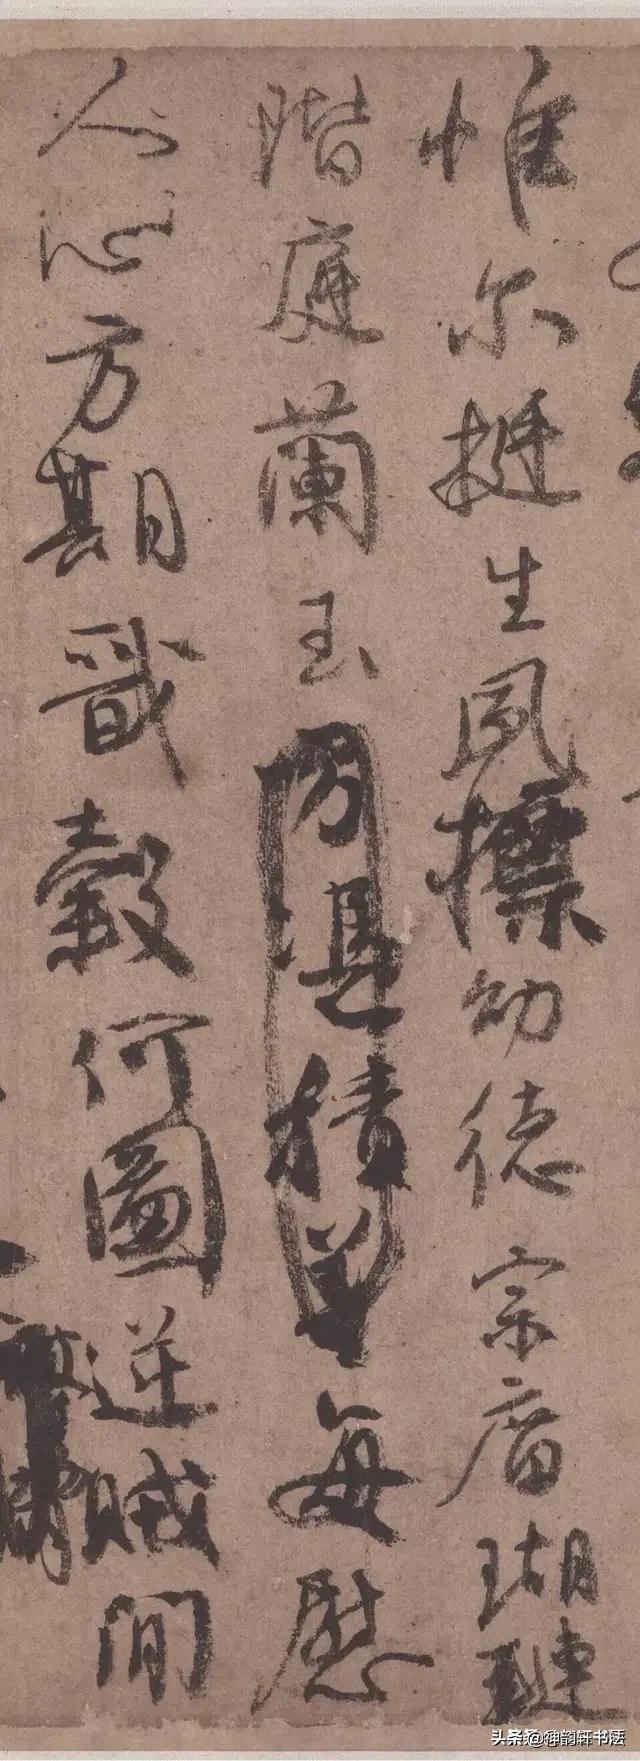 惟尔挺生夙標幼德宗廟瑚璉
階庭蘭玉方憑積善每慰
人心方期戩穀何圖逆賊間
头条@神韵轩书法